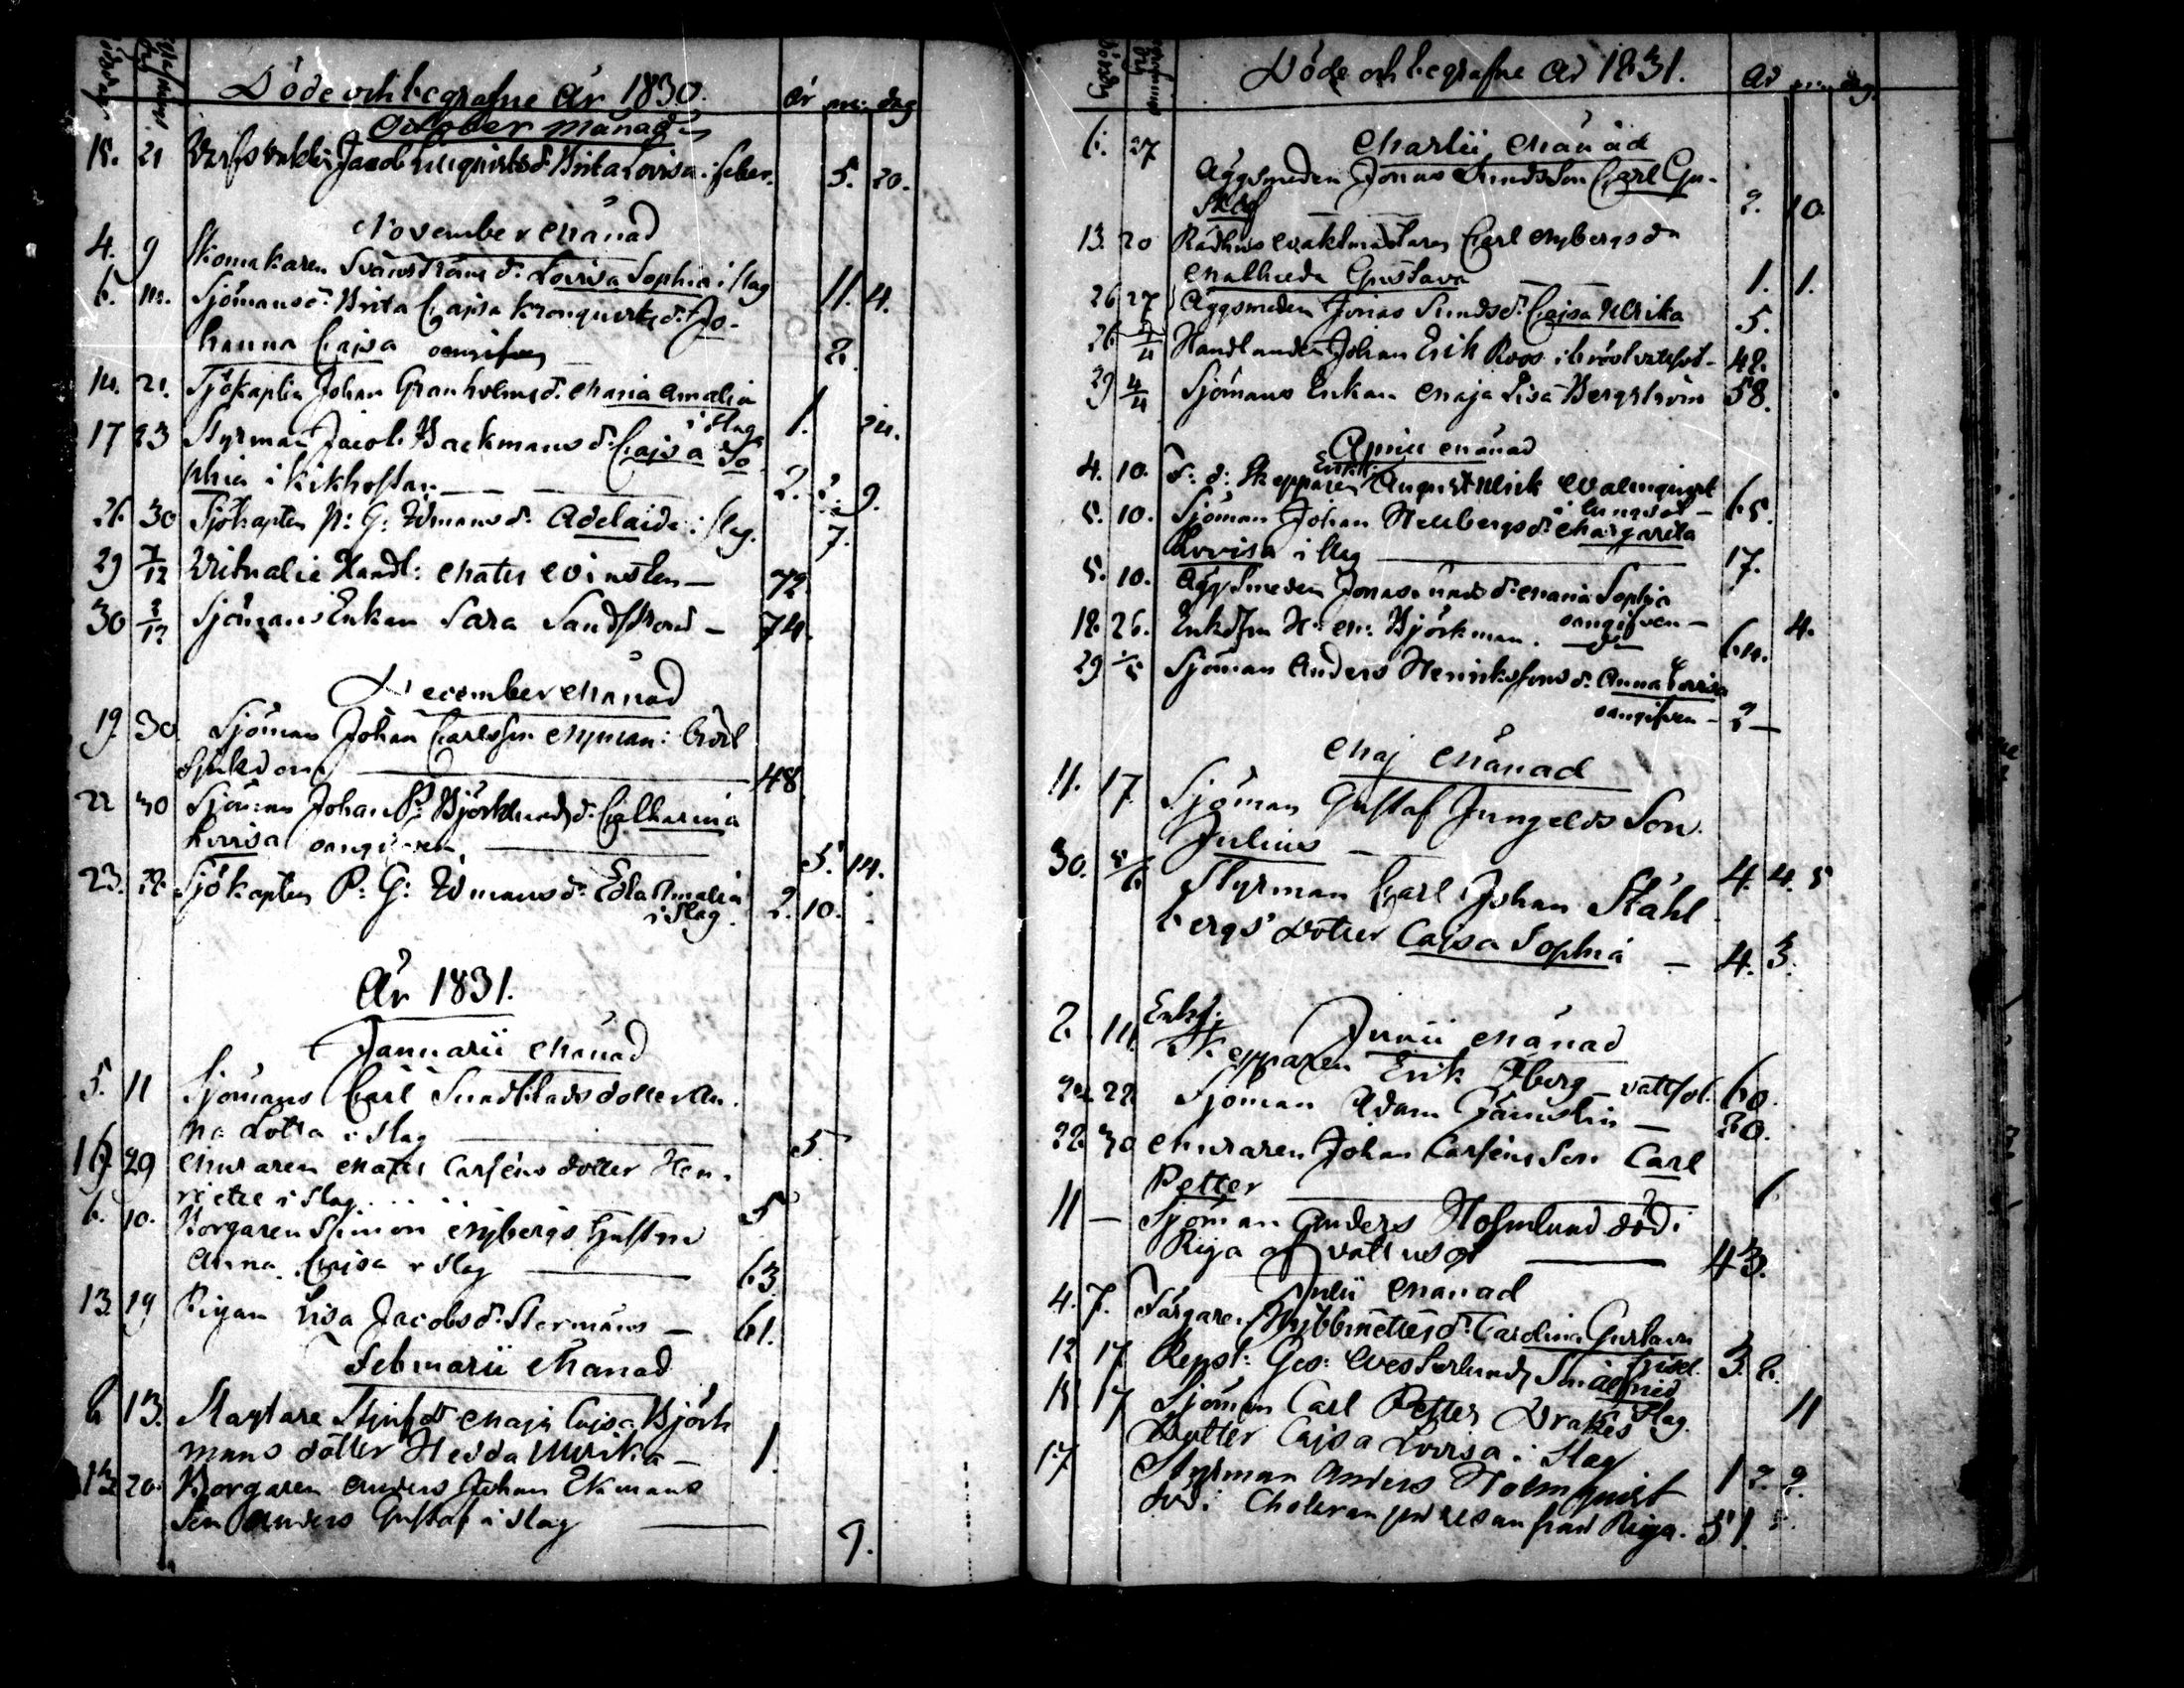 Döde och begrafne År 1830.
år m: dag
October månad
18. 21 Jacob d: Brita Lovisa i feber. 5. 20.
November Månad
4. 9 Skomakaren Svanströms d: Lovisa Sophia i slag 11. 4.
6. 14. Sjömansd: Brita Cajsa Kronquists d: Jo-
hanna Cajsa oangifven 2.
14. 21. Sjökapten Johan Granholms d. Maria Amalia
i slag 1. 24.
17 23 Styrman Jacob Backmans d. Cajsa So
phia i Kikhostan 2. 2. 9.
26. 30 Sjökapten P: G: d: Adelaide i slag. 7.
29 7/12 Victualie Handl: Mats Winsten — 72.
30 2/12 Sjömans Enkan Sara Sandstrom — 74.
December Månad
19. 30 Sjöman Johan Carlsson Nyman i bröst
sjukdom 48
22 30 Sjöman Johan P: Björklunds d. Catharina
Lovisa oangifven 5. 14.
23. 28 Sjökapten P: G: d: Eda Amalia
i slag. 2. 10.
År 1831.
Januarii Månad
5. 11 Sjömans Carl Sundblads dotter An-
na Lotta i slag 5
16. 29 Muraren Mats Carséns dotter Hen-
riette i slag 5
6. 10. Borgaren Simon Nybergs hustru
Anna Cajsa i slag 63
13. 19 Pigan Lisa Jacobsd: Stormans — 61.
Februarii Månad
6 13. Maja Cajsa Björk
mans dotter Hedda Ulrika — 1.
13 20. Borgaren Anders Johan Ekmans
Son Anders Gustaf i slag 9.
Döde och begrafne År 1831.
År m: dag.
Martii Månad
6. 27 Äggsmeden Jonas Sunds Son Carl Gu-
staf 2. 10.
13. 20 Rådhus Waktmästaren Carl Nybergs d:
Mathilda Gustava 1. 1.
26 27 Äggsmeden Jonas Sunds d: Cajsa Ulrika 5.
26 3/4 Handlanden Johan Erik Roos i bröstvattsot — 42.
29 4/4 Sjömans Enkan Maja Lisa Bergström 58.
Aprill Månad
4. 10. F: d: Skepparen Enkl: August Ulrik Walmquist
i lungsot — 65.
5. 10. Sjöman Johan Hellbergs d: Margareta
Lovisa i slag 17.
5. 10. Äggsmeden Jonas Sunds d: Maria Sophia
oangifven — 4.
18. 26. Enkefru H: M: Björkman. — d:o 64.
29 1/5 Sjöman Anders Henrikssons d: Anna Lovisa
oangifven — 2 —
Maj Månad
11. 17. Sjöman Gustaf Jungelds Son
Julius — 4. 4. 5
30. 5/6 Styrman Carl Johan Stahl
bergs dotter Cajsa Sophia — 4. 3.
Junii Månad
2. 11. Enkl: Skepparen Erik Öberg — vattsot. 60.
22 Sjöman Adam — 20.
22. 30 Muraren Johan Carséns Son Carl
Petter 1
11 — Sjöman Anders Holmlund död i
Riga af vattusot 43.
Julii Månad
4. 7. Färgaren d: Carolina Gustava
3. 2.
12 17 Repsl: Ges: Westerlunds
slag. 11
15 17 Sjöman Carl Petter Drakes
Dotter Cajsa Lovisa i slag 1 2. 2.
17 Styrman Anders Holmquist
död i Choleran på resan från Riga. 51.